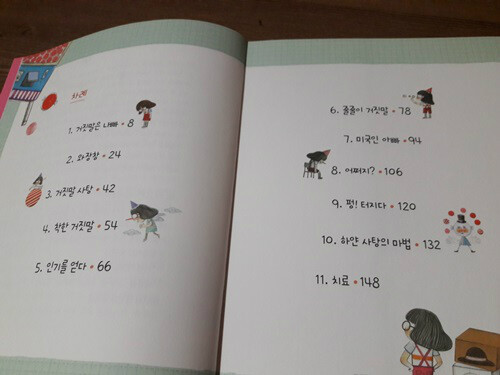 차례
1. 거짓말은 나빠 • 8
2. 와장창 • 24
3. 거짓말 사탕 • 42
4. 착한 거짓말 • 54
5. 인기를 얻다 • 66
6. 줄줄이 거짓말 • 78
7. 미국인 아빠 • 94
8. 어쩌지? • 106
9. 펑! 터지다 • 120
10. 하얀 사탕의 마법 • 132
11. 치료 • 148